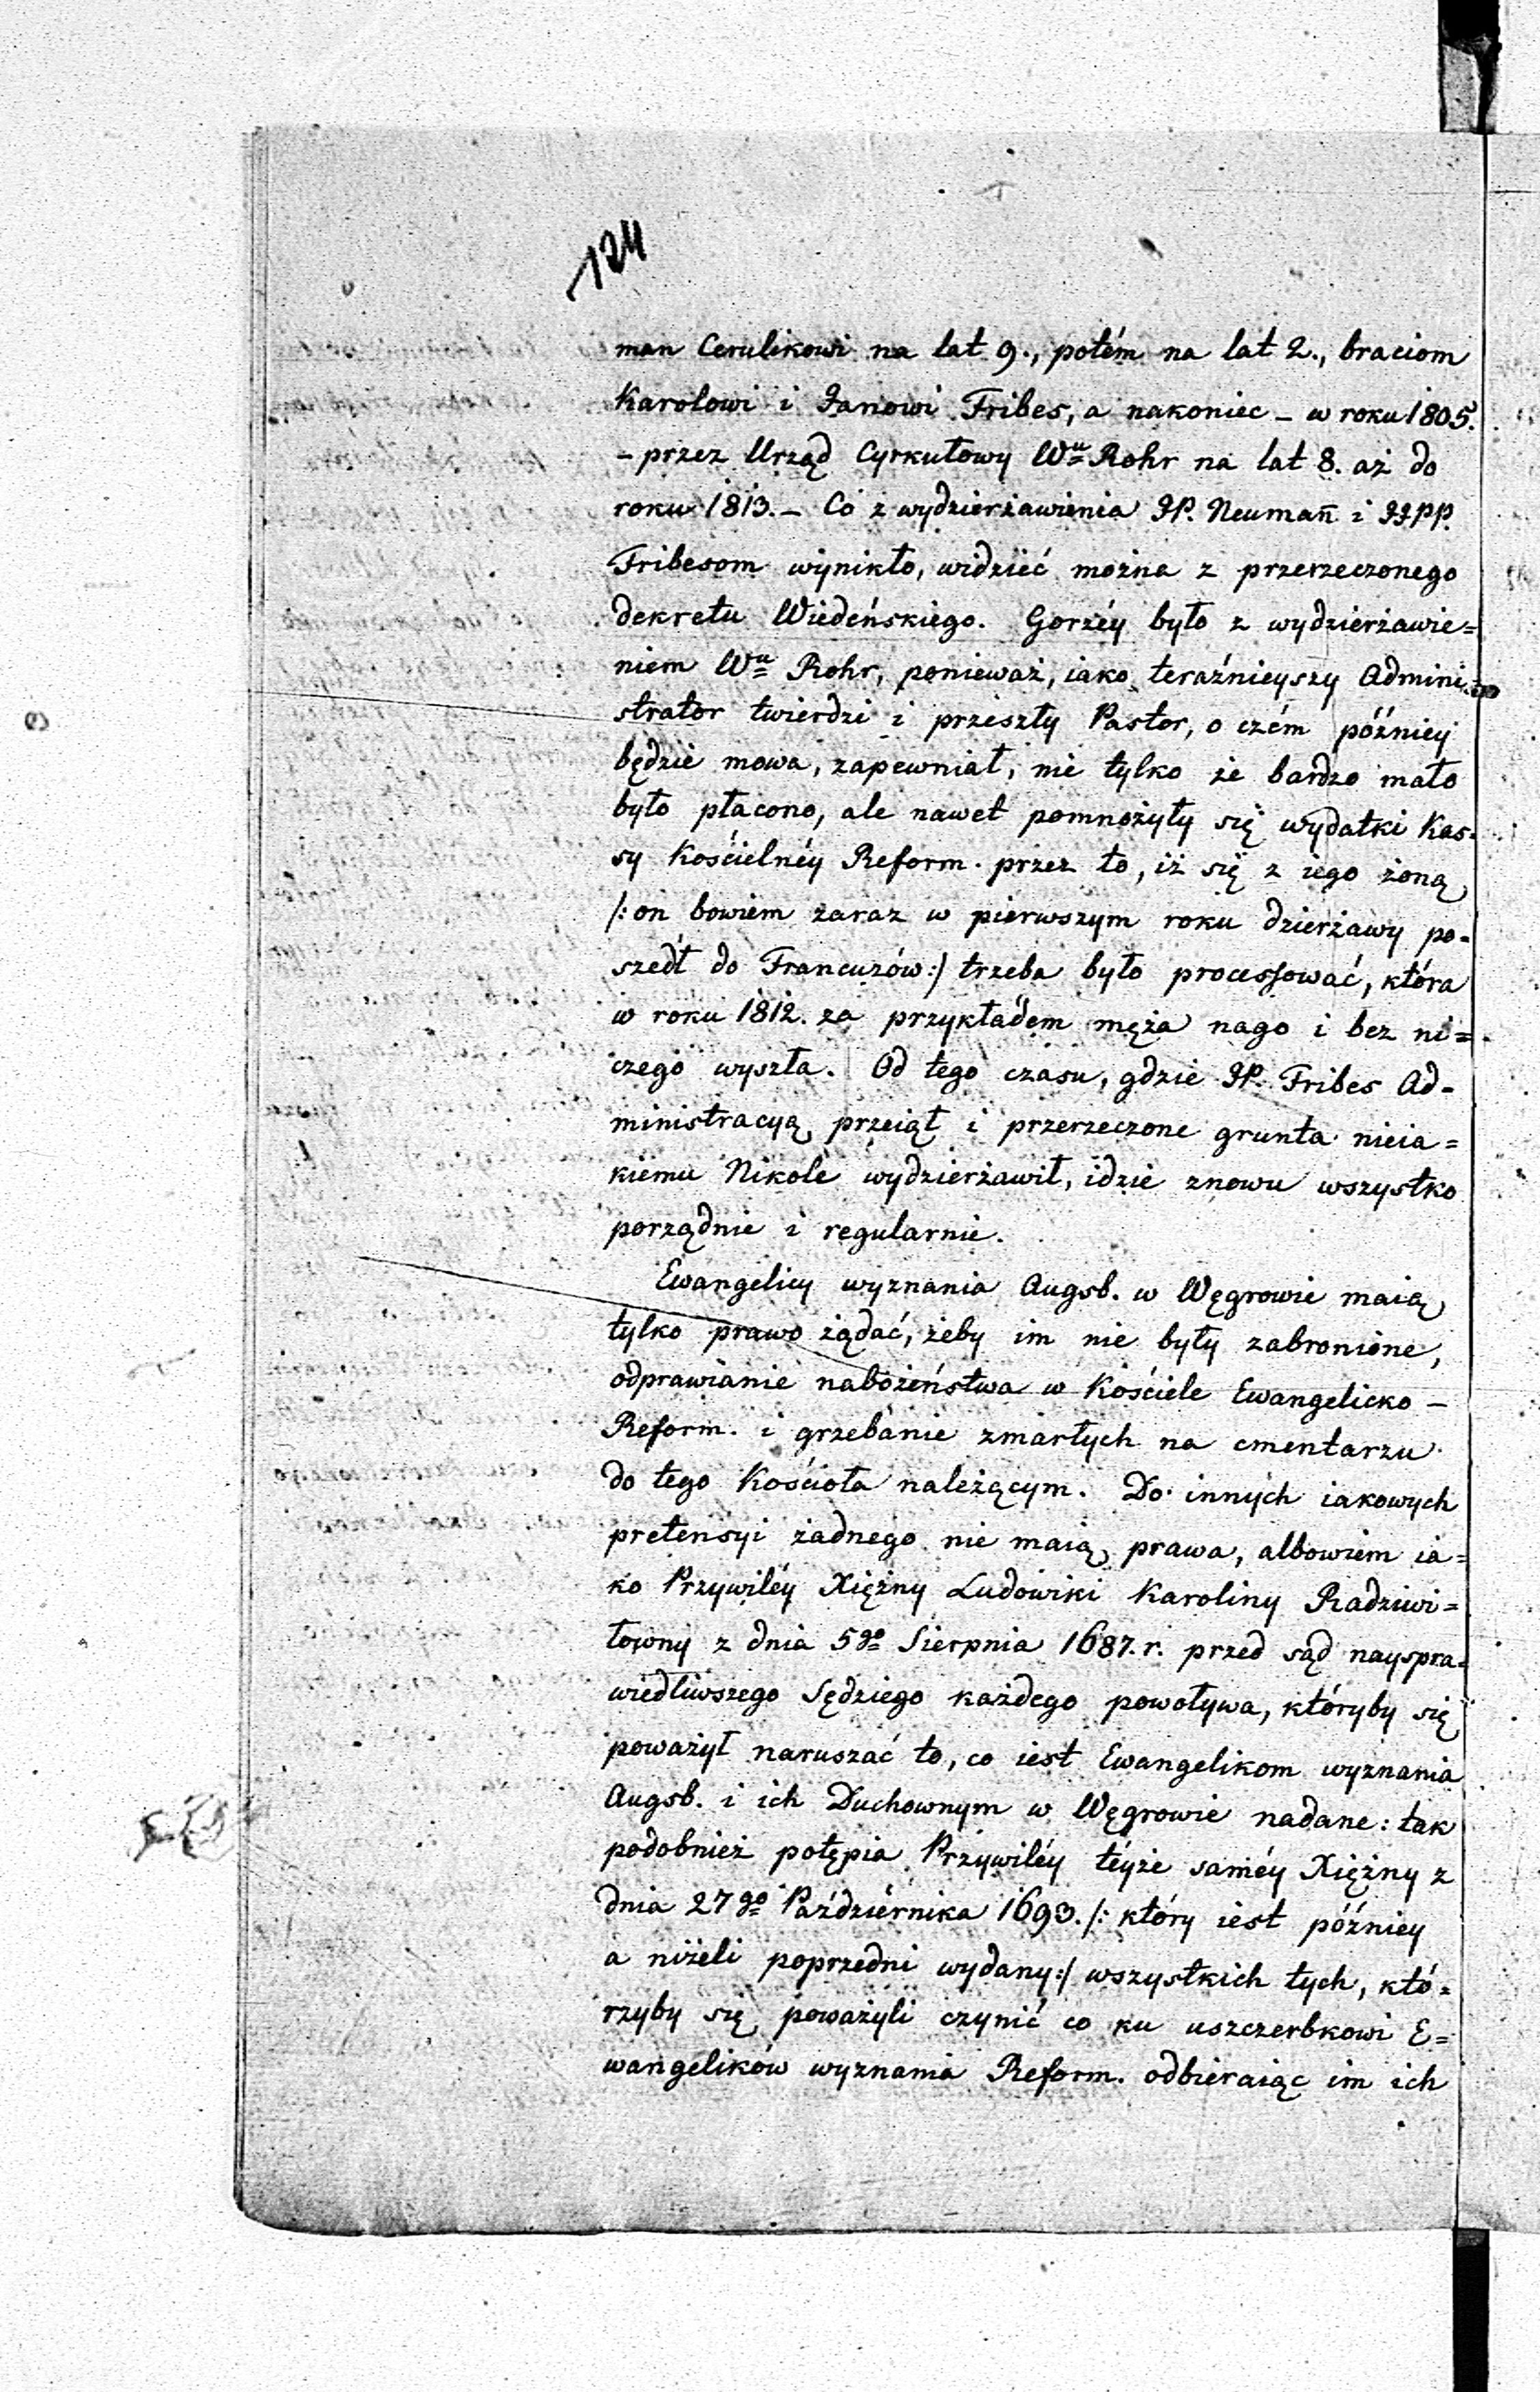 124
man Cerulikowi na lat 9., potém na lat 2., braciom
Karolowi i Janowi Fribes, a nakoniec – w roku 1805.
– przez Urząd Cyrkułowy Wu Rohr na lat 8. aż do
roku 1813. – Co z wydzierżawienia JP. Neumañ i JJPP.
Fribesom wynikło, widzieć można z przerzeczonego
dekretu Wiedeńskiego. Gorzéy było z wydzierżawie=
niem Wu Rohr, ponieważ, iako teraźnieyszy Admini=
strator twierdzi i przeszły Pastor, o czém późniey
będzie mowa, zapewniał, nie tylko że bardzo mało
było płacono, ale nawet pomnożyły się wydatki Kas-
sy Kościelnéy Reform. przez to, iż się z iego żoną
/: on bowiem zaraz w pierwszym roku dzierżawy po=
szedł do Francuzów :/ trzeba było processować, która
w roku 1812. za przykładem męża nago i bez ni=
czego wyszła. Od tego czasu, gdzie JP. Fribes Ad-
ministracyą przeiął i przerzeczone grunta nieia=
kiemu Nikole wydzierżawił, idzie znowu wszystko
porządnie i regularnie.
Ewangelicy wyznania Augsb. w Węgrowie maią
tylko prawo żądać, żeby im nie były zabronione,
odprawianie nabożeństwa w Kościele Ewangelicko –
Reform. i grzebanie zmarłych na cmentarzu
do tego Kościoła należącym. Do innych iakowych
pretensyi żadnego nie maią prawa, albowiem ia=
ko Przywiléy Xiężny Ludowiki Karoliny Radziwi=
łowny z dnia 5go Sierpnia 1687. r. przed sąd nayspra=
wiedliwszego Sędziego każdego powoływa, któryby się
poważył naruszać to, co iest Ewangelikom wyznania
Augsb. i ich Duchownym w Węgrowie nadane: tak
podobnież potępia Przywiléy téyże saméy Xiężny z
dnia 27go Października 1693. /: który iest późniey
a niżeli poprzedni wydany :/ wszystkich tych, któ=
rzyby się poważyli czynić co ku uszczerbkowi E=
wangelików wyznania Reform. odbieraiąc im ich